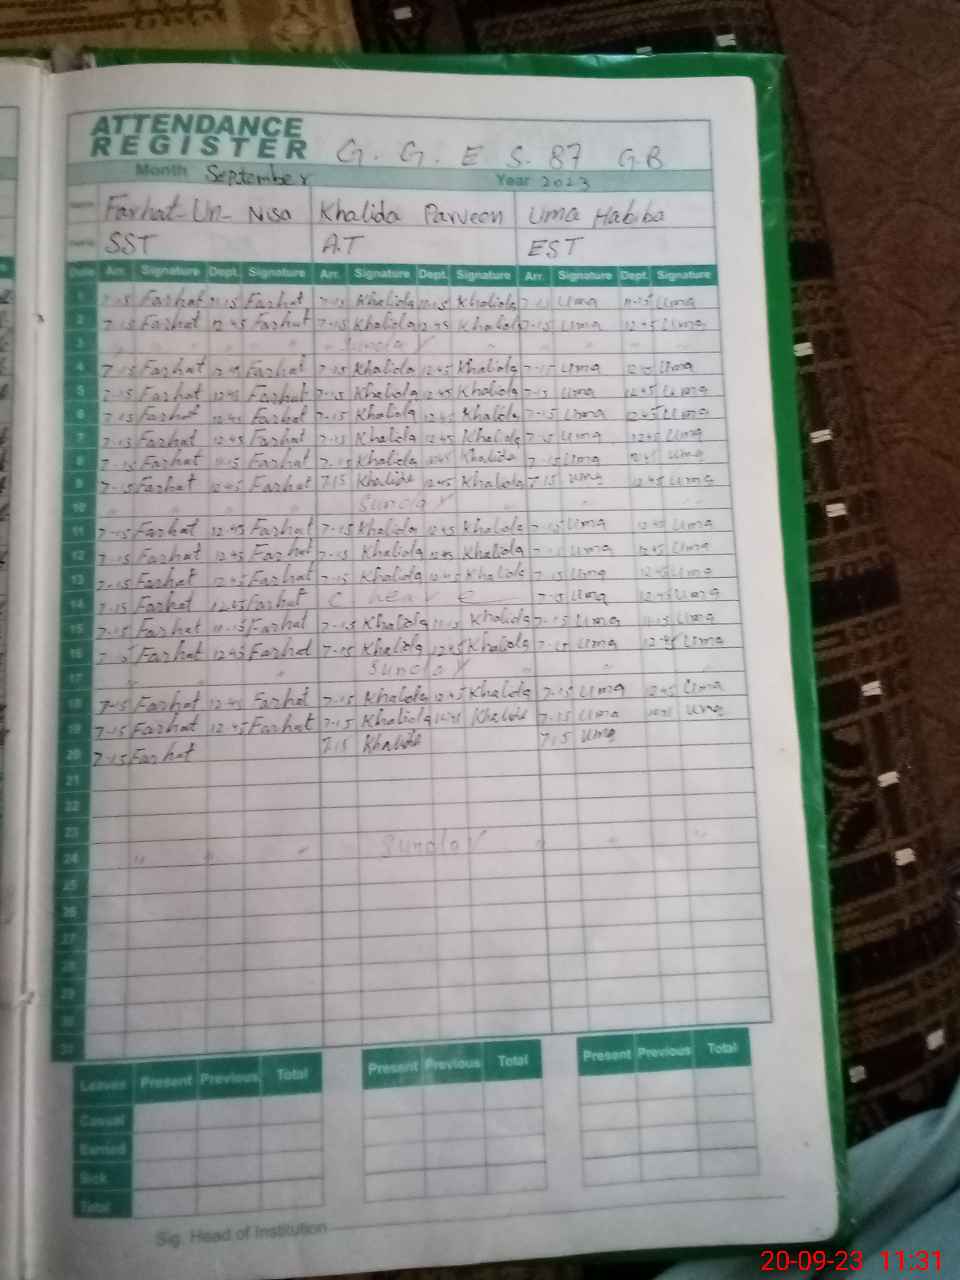 ATTENDANCE
REGISTER G. G. E S. 87 G.B
Month September Year 2023
Farhat-Un-Nisa Khalida Parveen Uma Habiba
SST A.T EST
Date Arr. Signature Dept. Signature Arr. Signature Dept. Signature Arr. Signature Dept. Signature
1 7-15 Farhat 11-15 Farhat 7-15 Khalida 11-15 Khalida Uma 11-15 Uma
2 7-15 Farhat 12-45 Farhat 7-15 Khalida 12-45 Khalida 7-15 Uma 12-45 Uma
3 Sunday
4 7-15 Farhat Farhat 7-15 Khalida 12-45 Khalida Uma Uma
5 7-15 Farhat 12-45 Farhat 7-15 Khalida 12-45 Khalida 7-15 Uma 12-45 Uma
6 7-15 Farhat 12-45 Farhat 7-15 Khalida 12-45 Khalida 7-15 Uma 12-45 Uma
7 7-15 Farhat 12-45 Farhat 7-15 Khalida 12-45 Khalida 7-15 Uma 12-45 Uma
8 7-15 Farhat 11-15 Farhat 7-15 Khalida Khalida 7-15 Uma Uma
9 7-15 Farhat 12-45 Farhat 7.15 Khalida 12-45 Khalida 7.15 Uma 12-45 Uma
10 Sunday
11 7-15 Farhat 12-45 Farhat 7-15 Khalida 12-45 Khalida 7-15 Uma 12-45 Uma
12 7-15 Farhat 12-45 Farhat 7-15 Khalida 12-45 Khalida Uma 12-45 Uma
13 7-15 Farhat 12-45 Farhat 7-15 Khalida 12-45 Khalida 7-15 Uma 12-45 Uma
14 7-15 Farhat 12-45 Farhat C 7-15 Uma 12-45 Uma
15 7-15 Farhat 11-15 Farhat 7-15 Khalida 11-15 Khalida 7-15 Uma 11-15 Uma
16 7-15 Farhat 12-45 Farhat 7-15 Khalida 12-45 Khalida 7-15 Uma 12-45 Uma
17 Sunday
18 7-15 Farhat 12-45 Farhat 7-15 Khalida 12-45 Khalida 7-15 Uma 12-45 Uma
19 7-15 Farhat 12-45 Farhat 7-15 Khalida Khalida 7-15 Uma Uma
20 7-15 Farhat 7.15 Khalida 7.15 Uma
21
22
23
24 " " " Sunday " " "
25
26
27
28
29
30
31
Leaves Present Previous Total Present Previous Total Present Previous Total
Casual
Earned
Sick
Total
Sig. Head of Institution
20-09-23 11:31